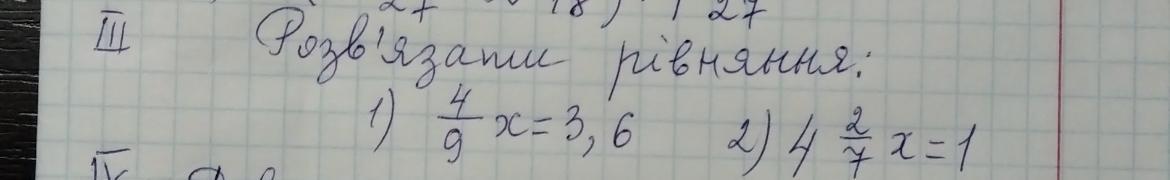 27 18) 27
III Розв'язати рівняння:
1) 4/9 x = 3,6 2) 4 2/7 x = 1
IV